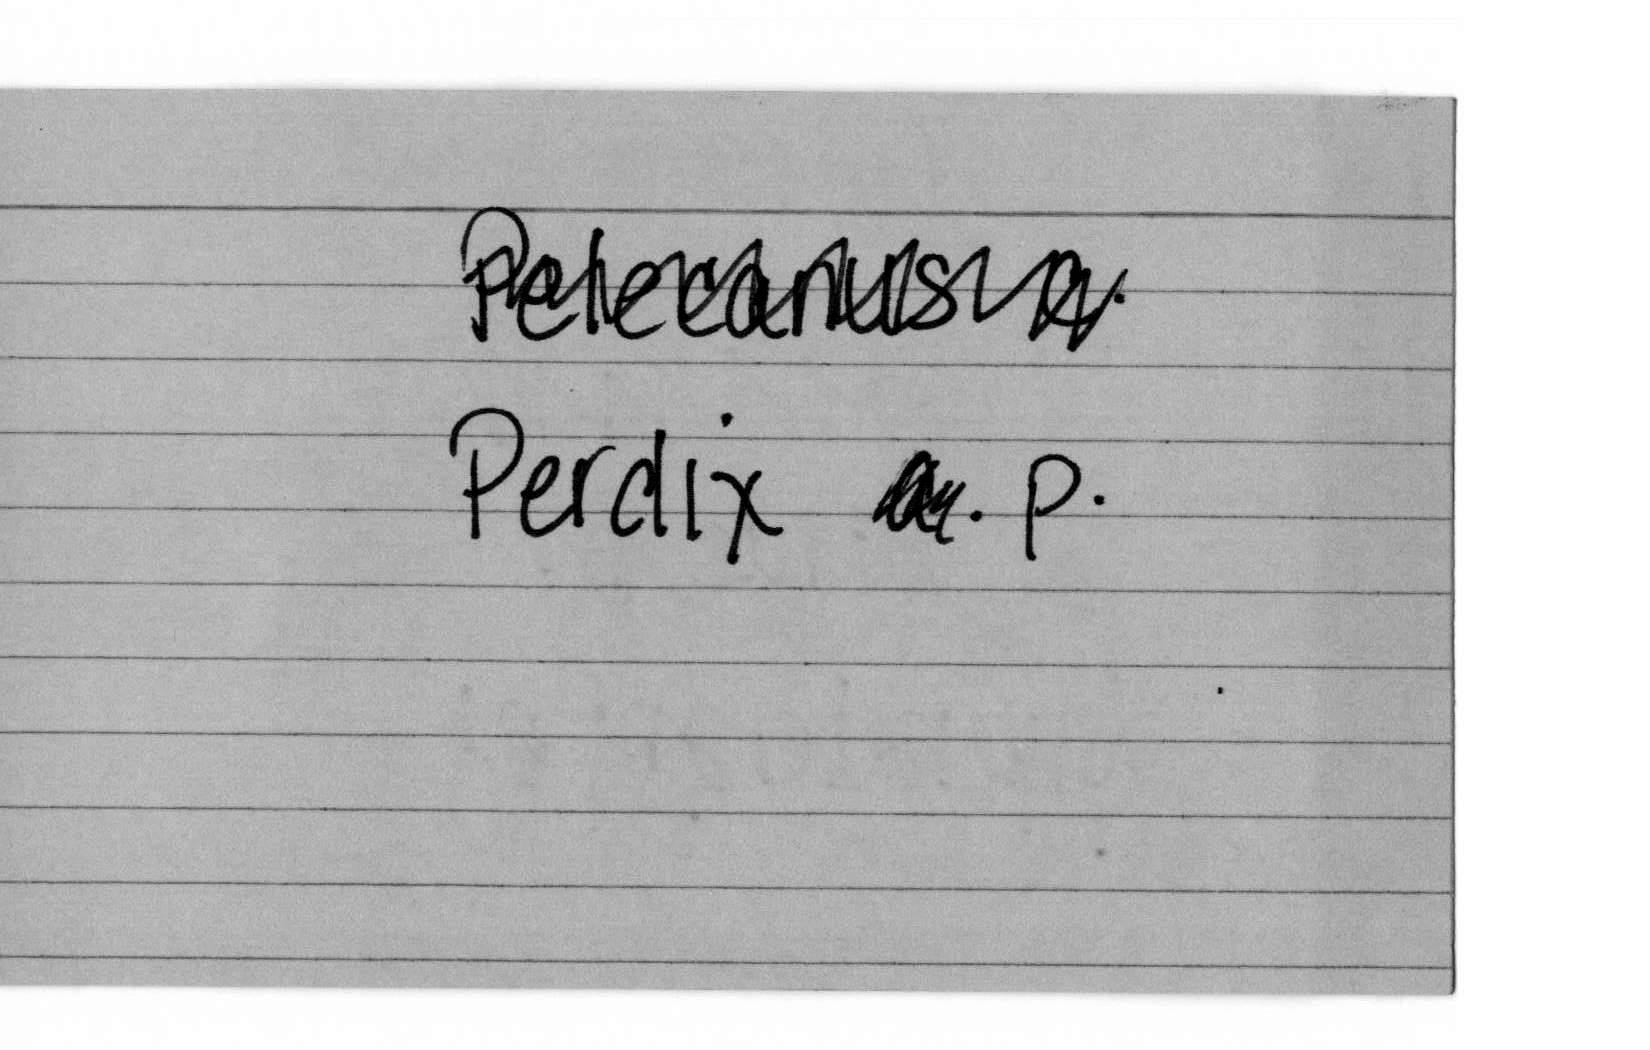 Pelecanus a.
Perdix a. p.